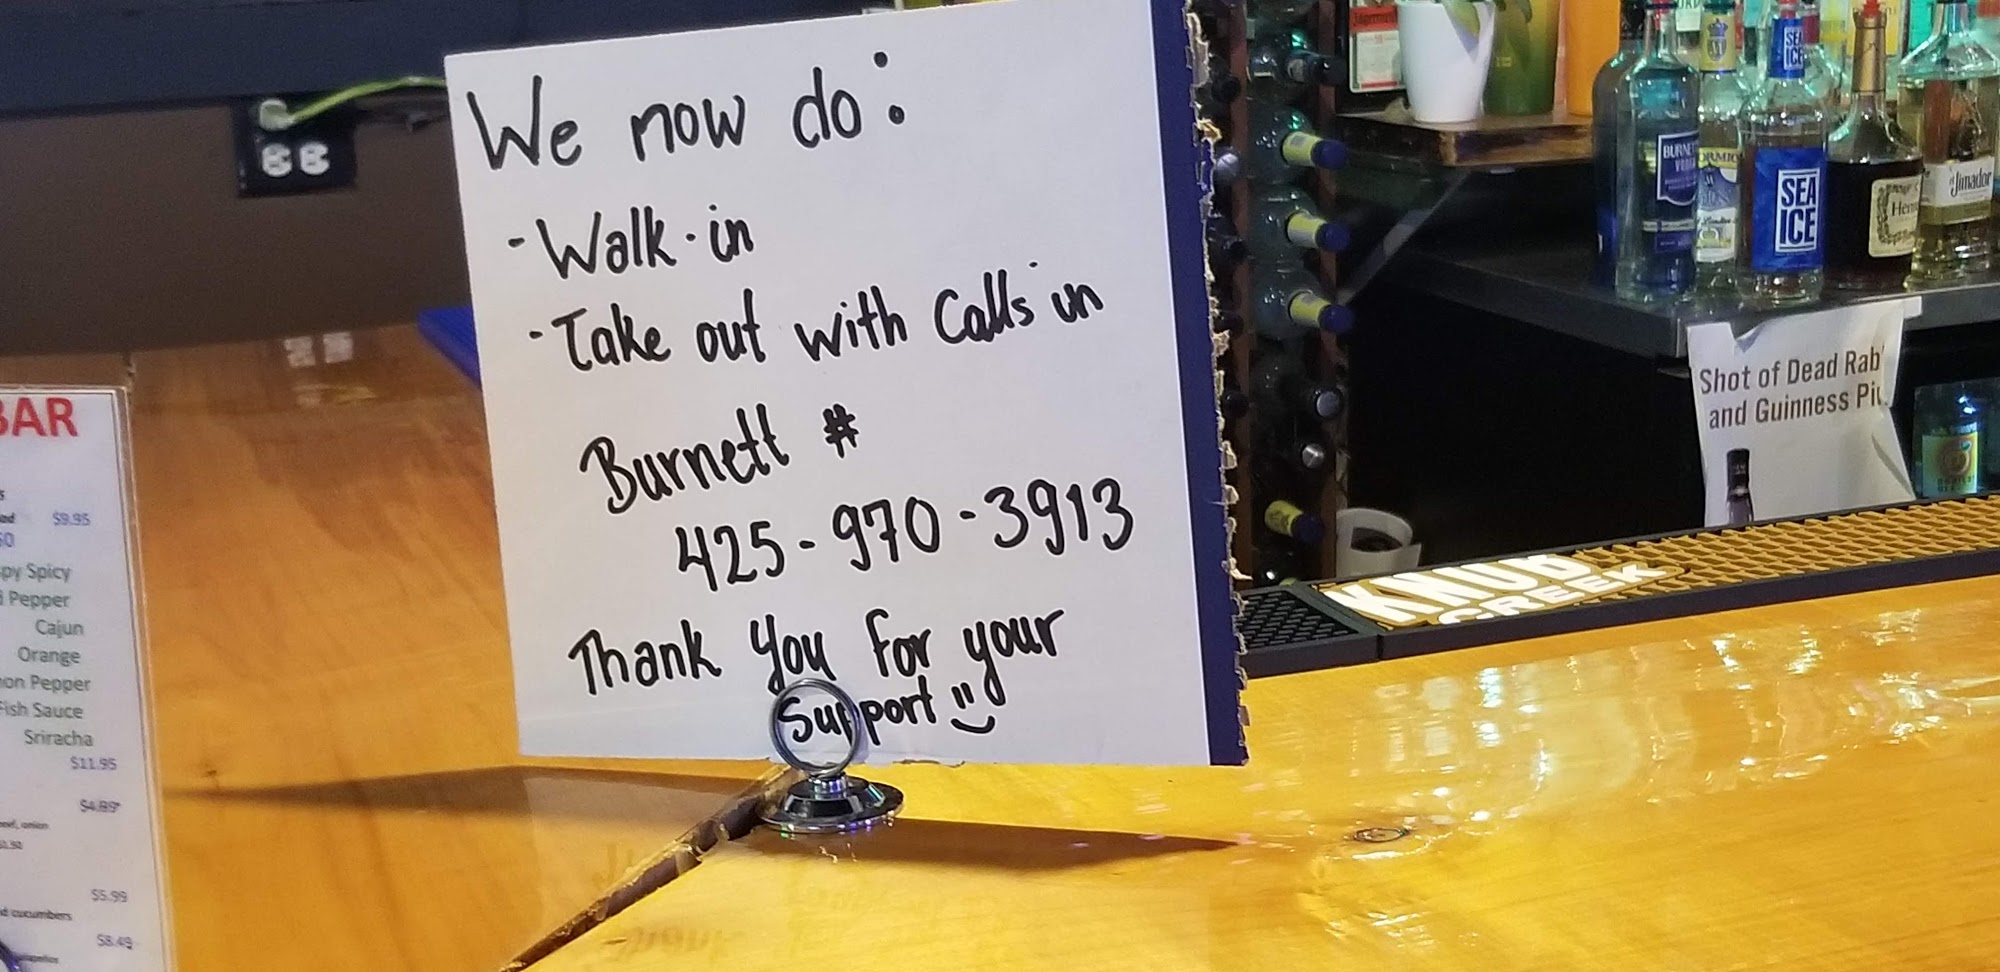 We now do:
- Walk-in
- Take out with Calls in
Burnett #
425-970-3913
Thank you for your
Support
BAR
$9.95
Spicy
Pepper
Cajun
Orange
Pepper
Fish Sauce
Sriracha
$11.95
$4.89
onion
$5.99
cucumbers
$8.49
SEA
ICE
VODKA
SEA
ICE
el Jimador
Shot of Dead
and Guinness
KNOB
CREEK